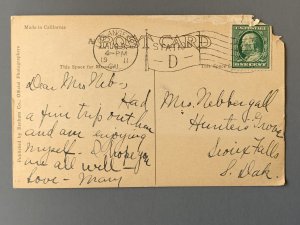 Made in California
POST CARD
This Space for Message
This Space
LOS ANGELES
4-PM
19 11
STATION
D
ONE CENT
Published by Rieder, Co., Official Photographers
Dear Mrs Neb-
Had
a fine trip out here
and am enjoying
myself. I hope you
are all well
Love - Mary
Mrs. Nebbergall
Hunters Grove
Sioux Falls
S. Dak.